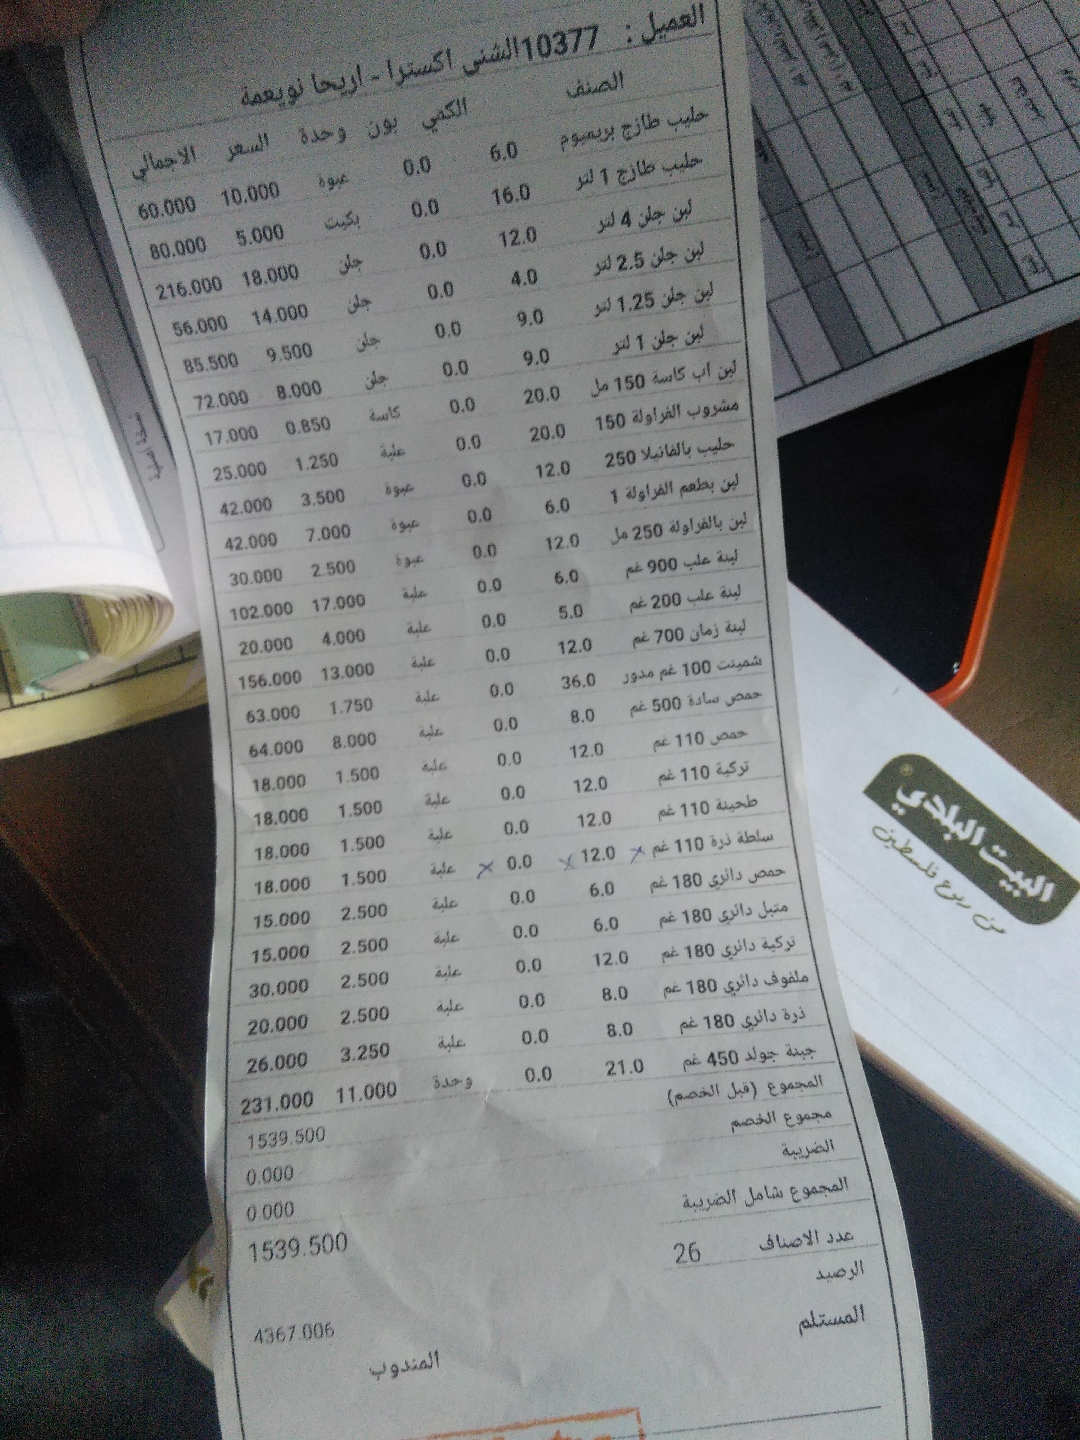 العميل : 10377الشني اكسترا - اريحا نويعمة
الصنف الكمي بون وحدة السعر الاجمالي
حليب طازج بريميوم 6.0 0.0 عبوة 10.000 60.000
حليب طازج 1 لتر 16.0 0.0 بكيت 5.000 80.000
لبن جلن 4 لتر 12.0 0.0 جلن 18.000 216.000
لبن جلن 2.5 لتر 4.0 0.0 جلن 14.000 56.000
لبن جلن 1.25 لتر 9.0 0.0 جلن 9.500 85.500
لبن جلن 1 لتر 9.0 0.0 جلن 8.000 72.000
لبن اب كاسة 150 مل 20.0 0.0 كاسة 0.850 17.000
مشروب الفراولة 150 20.0 0.0 علبة 1.250 25.000
حليب بالفانيلا 250 12.0 0.0 عبوة 3.500 42.000
لبن بطعم الفراولة 1 6.0 0.0 عبوة 7.000 42.000
لبن بالفراولة 250 مل 12.0 0.0 عبوة 2.500 30.000
لبنة علب 900 غم 6.0 0.0 علبة 17.000 102.000
لبنة علب 200 غم 5.0 0.0 علبة 4.000 20.000
لبنة زمان 700 غم 12.0 0.0 علبة 13.000 156.000
شمينت 100 غم مدور 36.0 0.0 علبة 1.750 63.000
حمص سادة 500 غم 8.0 0.0 علبة 8.000 64.000
حمص 110 غم 12.0 0.0 علبة 1.500 18.000
تركية 110 غم 12.0 0.0 علبة 1.500 18.000
طحينة 110 غم 12.0 0.0 علبة 1.500 18.000
سلطة ذرة 110 غم 12.0 0.0 علبة 1.500 18.000
حمص دائري 180 غم 6.0 0.0 علبة 2.500 15.000
متبل دائري 180 غم 6.0 0.0 علبة 2.500 15.000
تركية دائري 180 غم 12.0 0.0 علبة 2.500 30.000
ملفوف دائري 180 غم 8.0 0.0 علبة 2.500 20.000
ذرة دائري 180 غم 8.0 0.0 علبة 3.250 26.000
جبنة جولد 450 غم 21.0 0.0 وحدة 11.000 231.000
المجموع (قبل الخصم) 1539.500
مجموع الخصم 0.000
الضريبة 0.000
المجموع شامل الضريبة 1539.500
عدد الاصناف 26
الرصيد 4367.006
المستلم
المندوب
البيت البلدي
من ربوع فلسطين